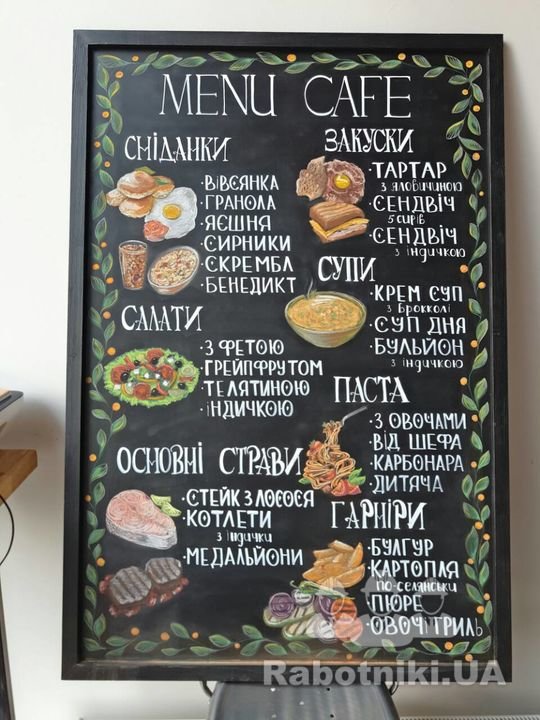 MENU CAFE
СНІДАНКИ
· ВІВСЯНКА
· ГРАНОЛА
· ЯЄШНЯ
· СИРНИКИ
· СКРЕМБЛ
· БЕНЕДИКТ
САЛАТИ
· З ФЕТОЮ
· ГРЕЙПФРУТОМ
· ТЕЛЯТИНОЮ
· ІНДИЧКОЮ
ОСНОВНІ СТРАВИ
· СТЕЙК З ЛОСОСЯ
· КОТЛЕТИ
з індички
· МЕДАЛЬЙОНИ
ЗАКУСКИ
· ТАРТАР
з яловичиною
· СЕНДВІЧ
5 сирів
· СЕНДВІЧ
з індичкою
СУПИ
· КРЕМ СУП
з броколлі
· СУП ДНЯ
· БУЛЬЙОН
з індичкою
ПАСТА
· З ОВОЧАМИ
· ВІД ШЕФА
· КАРБОНАРА
· ДИТЯЧА
ГАРНІРИ
· БУЛГУР
· КАРТОПЛЯ
по-селянськи
· ПЮРЕ
· ОВОЧІ ГРИЛЬ
Rabotniki.UA